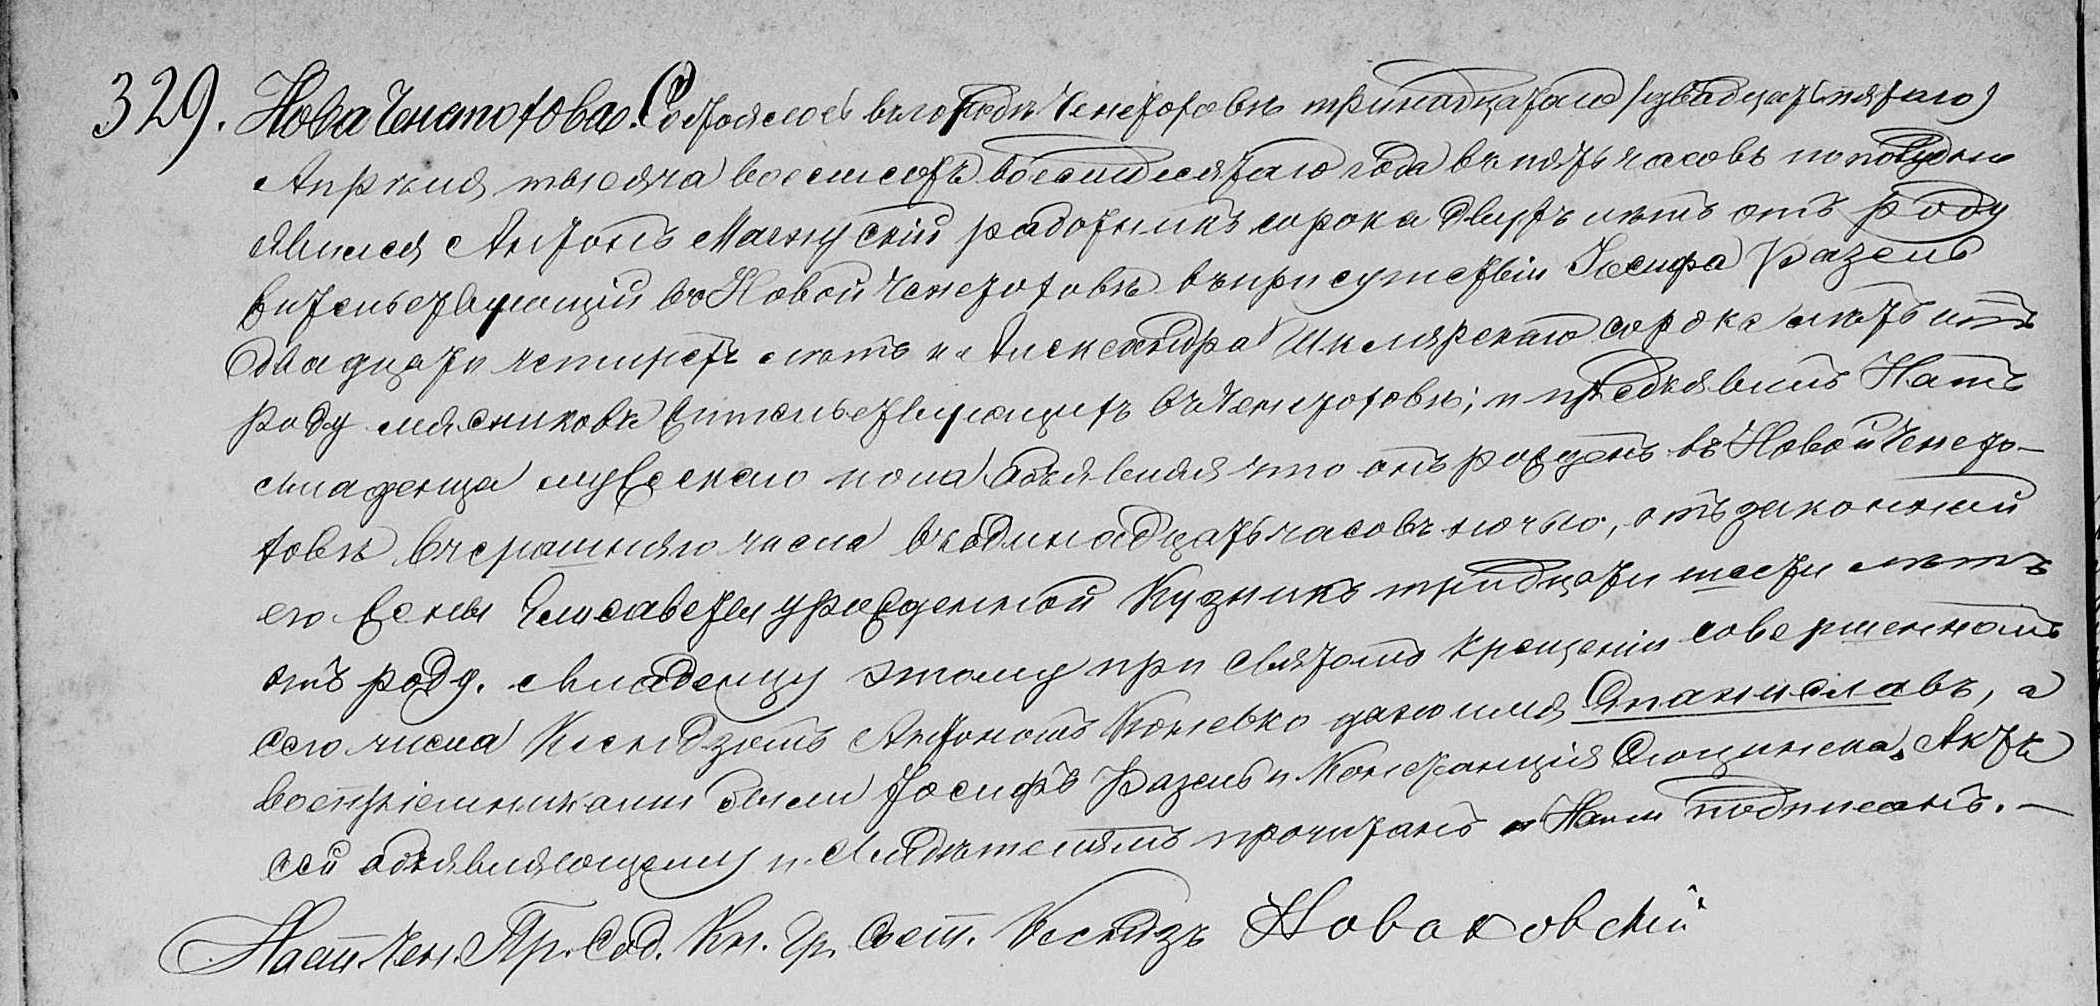 329. Нова Ченстохова. Состоялось въ городѣ Ченстоховѣ тринадцатаго /двадцать пятаго/
Апрѣля тысяча восемсотъ восемдесятаго года въ пять часовъ по полудни
явился Антонъ Магнускій работникъ сорока двухъ лѣтъ отъ роду
жительствующій въ Новой Ченстоховѣ въ присутствіи Іосифа Разель
двадцати четырехъ лѣтъ и Александра Шклярскаго сорока лѣтъ отъ
роду мясниковъ жительствующихъ въ Ченстоховѣ; и предъявилъ Намъ
младенца мужескаго пола объявляя что онъ рожденъ въ Новой Ченсто-
ховѣ вчерашняго числа въ одинадцать часовъ ночью, отъ законной
его жены Елисаветы урожденной Кузникъ тридцати шести лѣтъ
отъ роду. Младенцу этому при Святомъ Крещеніи совершенномъ
сего числа Ксендзомъ Антономъ дано имя Станиславъ, а
воспріемниками были Іосифъ Разель и Констанція. Актъ
сей объявляющему и Свидѣтелямъ прочитанъ и Нами подписанъ. —
Наст. Чен. Пр. Сод. Кн. Гр. Сост. Ксендзъ Новаковскій